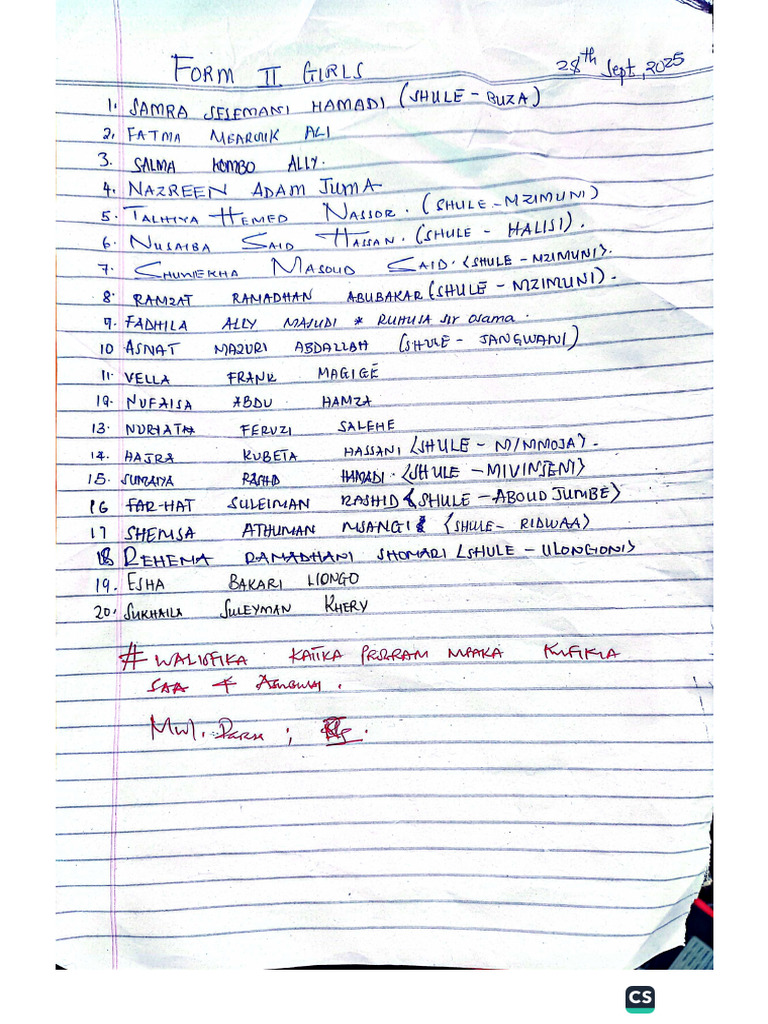 FORM II GIRLS 28th Sept, 2025
1. SAMRA SESEMANI HAMADI (SHULE - BUZA)
2. FATMA MBAROUK ALI
3. SALMA KOMBO ALLY.
4. NAZREEN ADAM JUMA
5. TALHIYA HEMED NASSOR. (SHULE - MZIMUNI)
6. NUSAIBA SAID HASSAN. (SHULE - HALISI).
7. MASOUD SAID. (SHULE - MZIMUNI).
8. RAMZAT RAMADHAN ABUBAKAR (SHULE - MZIMUNI).
9. FADHILA ALLY MASUDI * RUHUSA sir osama.
10 ASNAT MAZURI ABDALLAH (SHULE - JANGWANI)
11. VELLA FRANK MAGIGE
12. NUFAISA ABDU HAMZA
13. NURIATA FERUZI SALEHE
14. HAJRA KUBETA HASSANI (SHULE - M/MMOJA).
15. SUMAIYA RASHID HAMADI. (SHULE - MIVINJENI)
16 FAR-HAT SULEIMAN RASHID (SHULE - ABOUD JUMBE)
17 SHEMSA ATHUMAN MSANGI (SHULE - RIDWAA)
18 REHEMA RAMADHANI SHOMARI (SHULE - ULONGONI)
19. ESHA BAKARI LIONGO
20. SUKHAILA SULEYMAN KHERY
# WALIOFIKA KATIKA PROGRAM MPAKA KUFIKIA
SAA 4 ASUBUHI.
Mwl.
CS